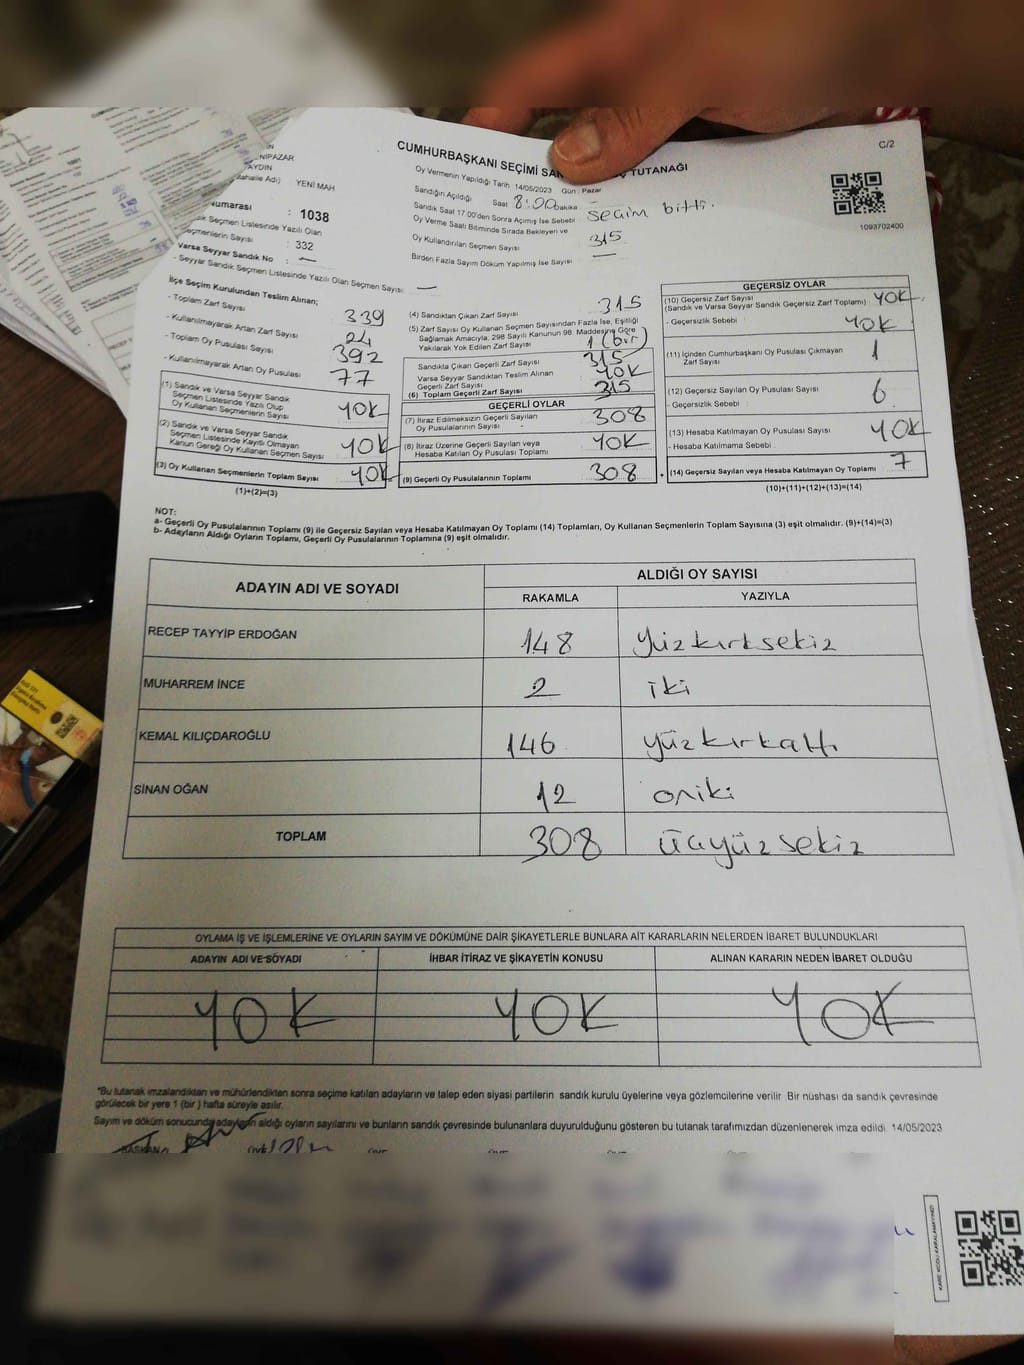 CUMHURBAŞKANI SEÇİMİ SAN TUTANAĞI
C/2
NİPAZAR
AYDIN
YENİ MAH
umarası : 1038
Seçmen Listesinde Yazılı Olan
Seçmenlerin Sayısı : 332
Varsa Seyyar Sandık No : —
- Seyyar Sandık Seçmen Listesinde Yazılı Olan Seçmen Sayısı : —
Oy Vermenin Yapıldığı Tarih 14/05/2023 Gün : Pazar
Sandığın Açıldığı Saat 8:00 Dakika —
Sandık Saat 17:00'den Sonra Açılmış İse Sebebi seçim bitti.
Oy Verme Saati Bitiminde Sırada Bekleyen ve
Oy Kullandırılan Seçmen Sayısı 315
Birden Fazla Sayım Döküm Yapılmış İse Sayısı —
1093702400
İlçe Seçim Kurulundan Teslim Alınan;
- Toplam Zarf Sayısı 339
- Kullanılmayarak Artan Zarf Sayısı 24
- Toplam Oy Pusulası Sayısı 392
- Kullanılmayarak Artan Oy Pusulası 77
(1) Sandık ve Varsa Seyyar Sandık
Seçmen Listesinde Yazılı Olup
Oy Kullanan Seçmenlerin Sayısı YOK
(2) Sandık ve Varsa Seyyar Sandık
Seçmen Listesinde Kayıtlı Olmayan
Kanun Gereği Oy Kullanan Seçmen Sayısı YOK
(3) Oy Kullanan Seçmenlerin Toplam Sayısı YOK
(1)+(2)=(3)
(4) Sandıktan Çıkan Zarf Sayısı 315
(5) Zarf Sayısı Oy Kullanan Seçmen Sayısından Fazla İse, Eşitliği
Sağlamak Amacıyla, 298 Sayılı Kanunun 98. Maddesine Göre
Yakılarak Yok Edilen Zarf Sayısı 1 (bir)
Sandıkta Çıkan Geçerli Zarf Sayısı 315
Varsa Seyyar Sandıktan Teslim Alınan
Geçerli Zarf Sayısı YOK
(6) Toplam Geçerli Zarf Sayısı 315
GEÇERLİ OYLAR
(7) İtiraz Edilmeksizin Geçerli Sayılan
Oy Pusulalarının Sayısı 308
(8) İtiraz Üzerine Geçerli Sayılan veya
Hesaba Katılan Oy Pusulası Toplamı YOK
(9) Geçerli Oy Pusulalarının Toplamı 308
GEÇERSİZ OYLAR
(10) Geçersiz Zarf Sayısı
(Sandık ve Varsa Seyyar Sandık Geçersiz Zarf Toplamı) YOK
- Geçersizlik Sebebi YOK
(11) İçinden Cumhurbaşkanı Oy Pusulası Çıkmayan
Zarf Sayısı 1
(12) Geçersiz Sayılan Oy Pusulası Sayısı 6
- Geçersizlik Sebebi :
(13) Hesaba Katılmayan Oy Pusulası Sayısı YOK
- Hesaba Katılmama Sebebi
(14) Geçersiz Sayılan veya Hesaba Katılmayan Oy Toplamı 7
(10)+(11)+(12)+(13)=(14)
NOT:
a- Geçerli Oy Pusulalarının Toplamı (9) ile Geçersiz Sayılan veya Hesaba Katılmayan Oy Toplamı (14) Toplamları, Oy Kullanan Seçmenlerin Toplam Sayısına (3) eşit olmalıdır. (9)+(14)=(3)
b- Adayların Aldığı Oyların Toplamı, Geçerli Oy Pusulalarının Toplamına (9) eşit olmalıdır.
ADAYIN ADI VE SOYADI ALDIĞI OY SAYISI
RAKAMLA YAZIYLA
RECEP TAYYİP ERDOĞAN 148 yüzkırksekiz
MUHARREM İNCE 2 iki
KEMAL KILIÇDAROĞLU 146 yüzkırkaltı
SİNAN OĞAN 12 oniki
TOPLAM 308 üçyüzsekiz
OYLAMA İŞ VE İŞLEMLERİNE VE OYLARIN SAYIM VE DÖKÜMÜNE DAİR ŞİKAYETLERLE BUNLARA AİT KARARLARIN NELERDEN İBARET BULUNDUKLARI
ADAYIN ADI VE SOYADI İHBAR İTİRAZ VE ŞİKAYETİN KONUSU ALINAN KARARIN NEDEN İBARET OLDUĞU
YOK YOK YOK
*Bu tutanak imzalandıktan ve mühürlendikten sonra seçime katılan adayların ve talep eden siyasi partilerin sandık kurulu üyelerine veya gözlemcilerine verilir. Bir nüshası da sandık çevresinde
görülecek bir yere 1 (bir) hafta süreyle asılır.
Sayım ve döküm sonucunda adayların aldığı oyların sayılarını ve bunların sandık çevresinde bulunanlara duyurulduğunu gösteren bu tutanak tarafımızdan düzenlenerek imza edildi. 14/05/2023
BAŞKAN